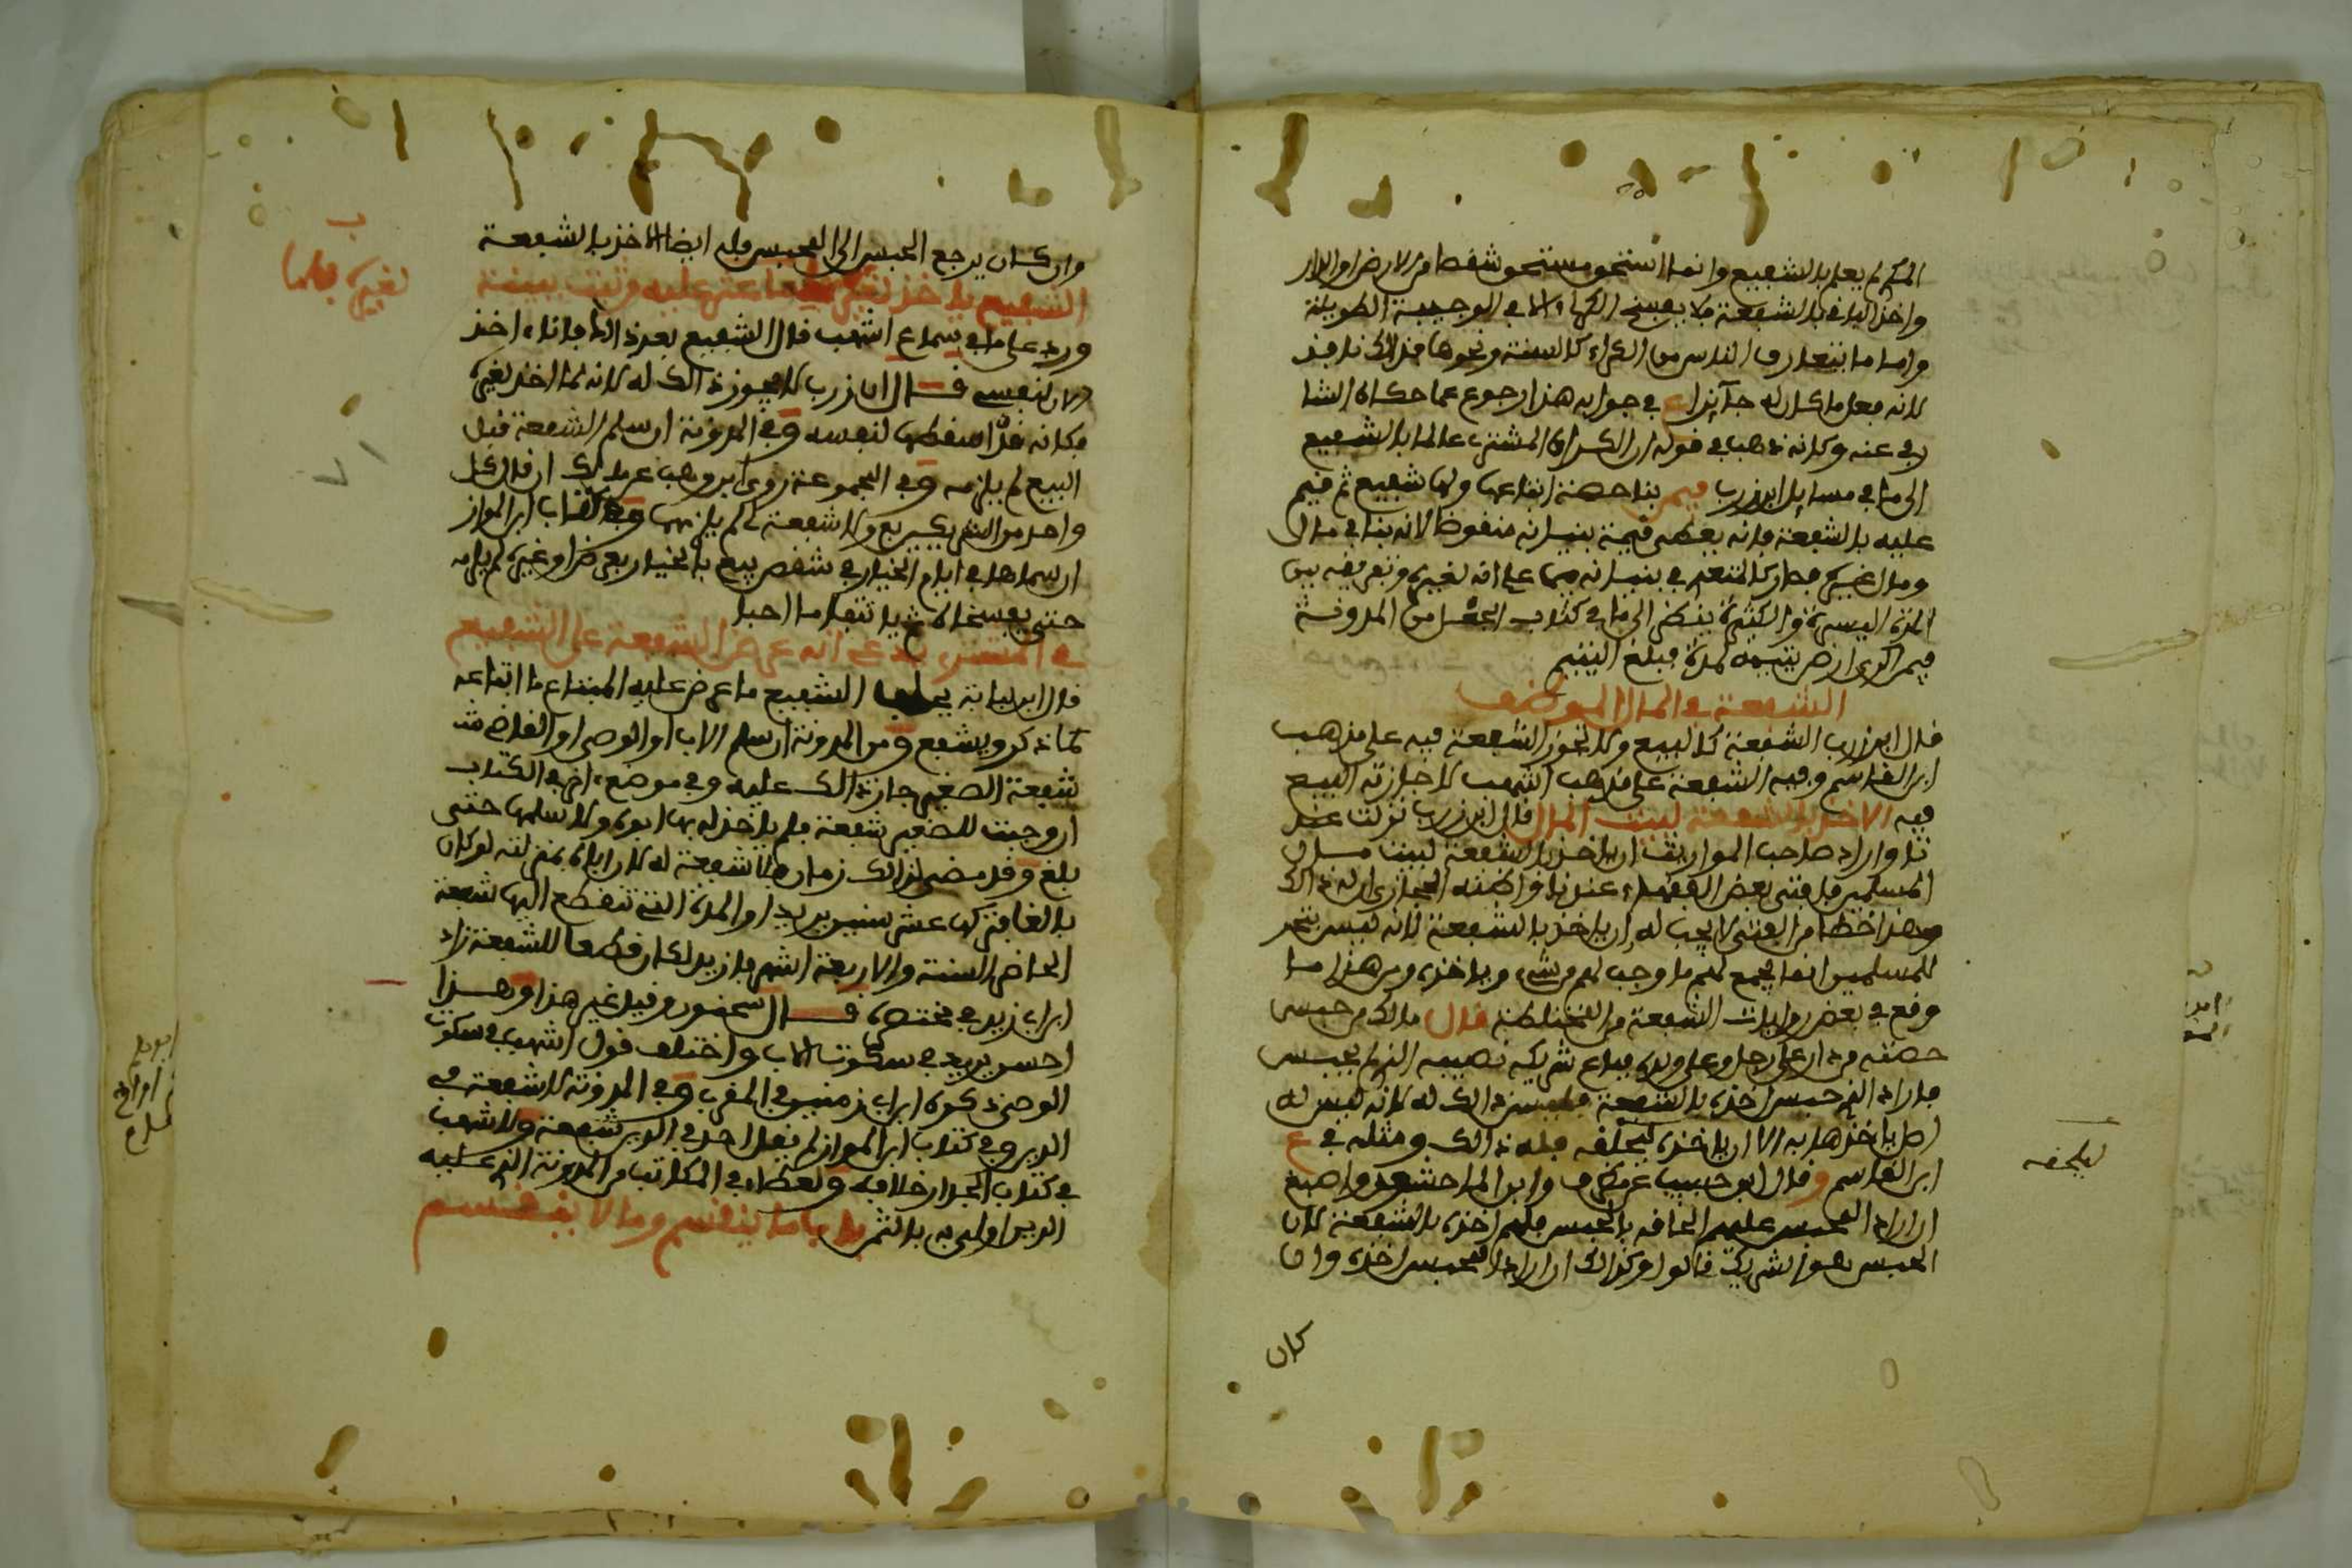 المكري لم يعلم بالشفيع وانما استحق مستحق شقصا من الارض او الدار
واخذ الباقي بالشفعة فلا يفسخ الكراء الا في الوجيبة الطويلة
واما ما يتعارف الناس من الكراء كالسنة ونحوها فذلك نافذ
لانه فعل ما كان له جائزا ع في جوابه هذا رجوع عما حكاه الشا
رفي عنه وكانه ذهب في قوله ان الكراء المشتري عالما بالشفيع
الى ما في مسايل ابن زرب فيمن بنا حصة ابتاعها ولها شفيع ثم قيم
عليه بالشفعة فانه يعطى قيمة بنيانه منقوضا لانه بنا في مال
ومال غيره فصار كالمتعدي في بنيانه فيما علم انه لغيره وتفريقه بين
المدة اليسيرة والكثيرة ينظر الى ما في كتاب الجعل من المدونة
فيمن اكرى ارض يتيمه لمدة فبلغ اليتيم
الشفعة في المال الموظف
قال ابن زرب الشفعة كالبيع ولا تجوز الشفعة فيه على مذهب
ابن القاسم وفيه الشفعة على مذهب اشهب لاجازته البيع
فيه الاخذ بالشفعة لبيت المال قال ابن زرب نزلت عند
نا واراد صاحب المواريث ان ياخذ بالشفعة لبيت مال
المسلمين فافتى بعض الفقهاء عندنا واظنه الحجاري ان له ذلك
وهذا خطا من الفتى لا يجب له ان ياخذ بالشفعة لانه ليس يتجر
للمسلمين انما يجمع لهم ما وجب لهم من شيء وياخذه ومن هذا ما
وقع في بعض روايات الشفعة من المختلطة قال مالك من حبس
حصته من دار على رجل وعلى ولده فباع شريكه نصيبه الذي لم يحبس
فاراد الذي حبس اخذه بالشفعة فليس ذلك له لانه ليس له
اصل ياخذها به الا ان ياخذه ليحلقه فله ذلك ومثله في ع
ابن القاسم وقال ابن حبيب عن مطرف وابن الماجشون واصبغ
ان اراد المحبس عليهم الحاقه بالحبس فلهم اخذه بالشفعة لان
الحبس هو الشريك قالوا وكذلك ان اراد المحبس اخذه وان
كان
ليلحقه
وان كان يرجع الحبس الى المحبس فله ايضا الاخذ بالشفعة
الشفيع ياخذ لغيره
لغيره
ورد على ما في سماع اشهب قال الشفيع بعد ذلك فانا اخذ
الان لنفسي قال ابن زرب لا يجوز ذلك له لانه لما اخذ لغيره
فكانه قد اسقطها لنفسه وفي المدونة ان سلم الشفعة قبل
البيع لم يلزمه وفي المجموعة روى ابن وهب عن مالك ان قال كل
واحد من الشريكين بع ولا شفعة لي لم يلزمها وفي كتاب ابن المواز
ان سماها في ايام الخيار في شقص بيع بالخيار بعرض او غيره لم يلزمه
في المشتري يدعي انه عرض الشفعة على الشفيع
قال ابن لبابة يحلف الشفيع ما عرض عليه المبتاع ما ابتاعه
كما ذكر ويشفع ومن المدونة ان سلم الاب او الوصي او القاضي
شفعة الصغير جاز ذلك عليه وفي موضع اخر في الكتاب
ان وجبت للصغير شفعة فلم ياخذ له بها ابوه ولا سلمها حتى
بلغ وقد مضى لذلك زمان فلا شفعة له لان اباه بمنزلته لو كان
بالغا فتركها عشر سنين يريد او المدة التي تنقطع اليها شفعة
الحاضر السنة والاربعة اشهر فازيد لكان قطعا للشفعة زاد
ابن ابي زيد في مختصره قال سحنون وقيل غير هذا وهذا
احسن يريد في سكوت الاب واختلف قول اشهب في سكوت
الوصي ذكره ابن ابي زمنين في المغرب وفي المدونة لا شفعة في
الدين وفي كتاب ابن المواز لم يقل احد في الدين شفعة ولاشهب
في كتاب الجدار خلافه ولعطاء في المكاتب من المدونة الذي عليه
الدين اولى به بالثمن باب ما ينقسم وما لا ينقسم